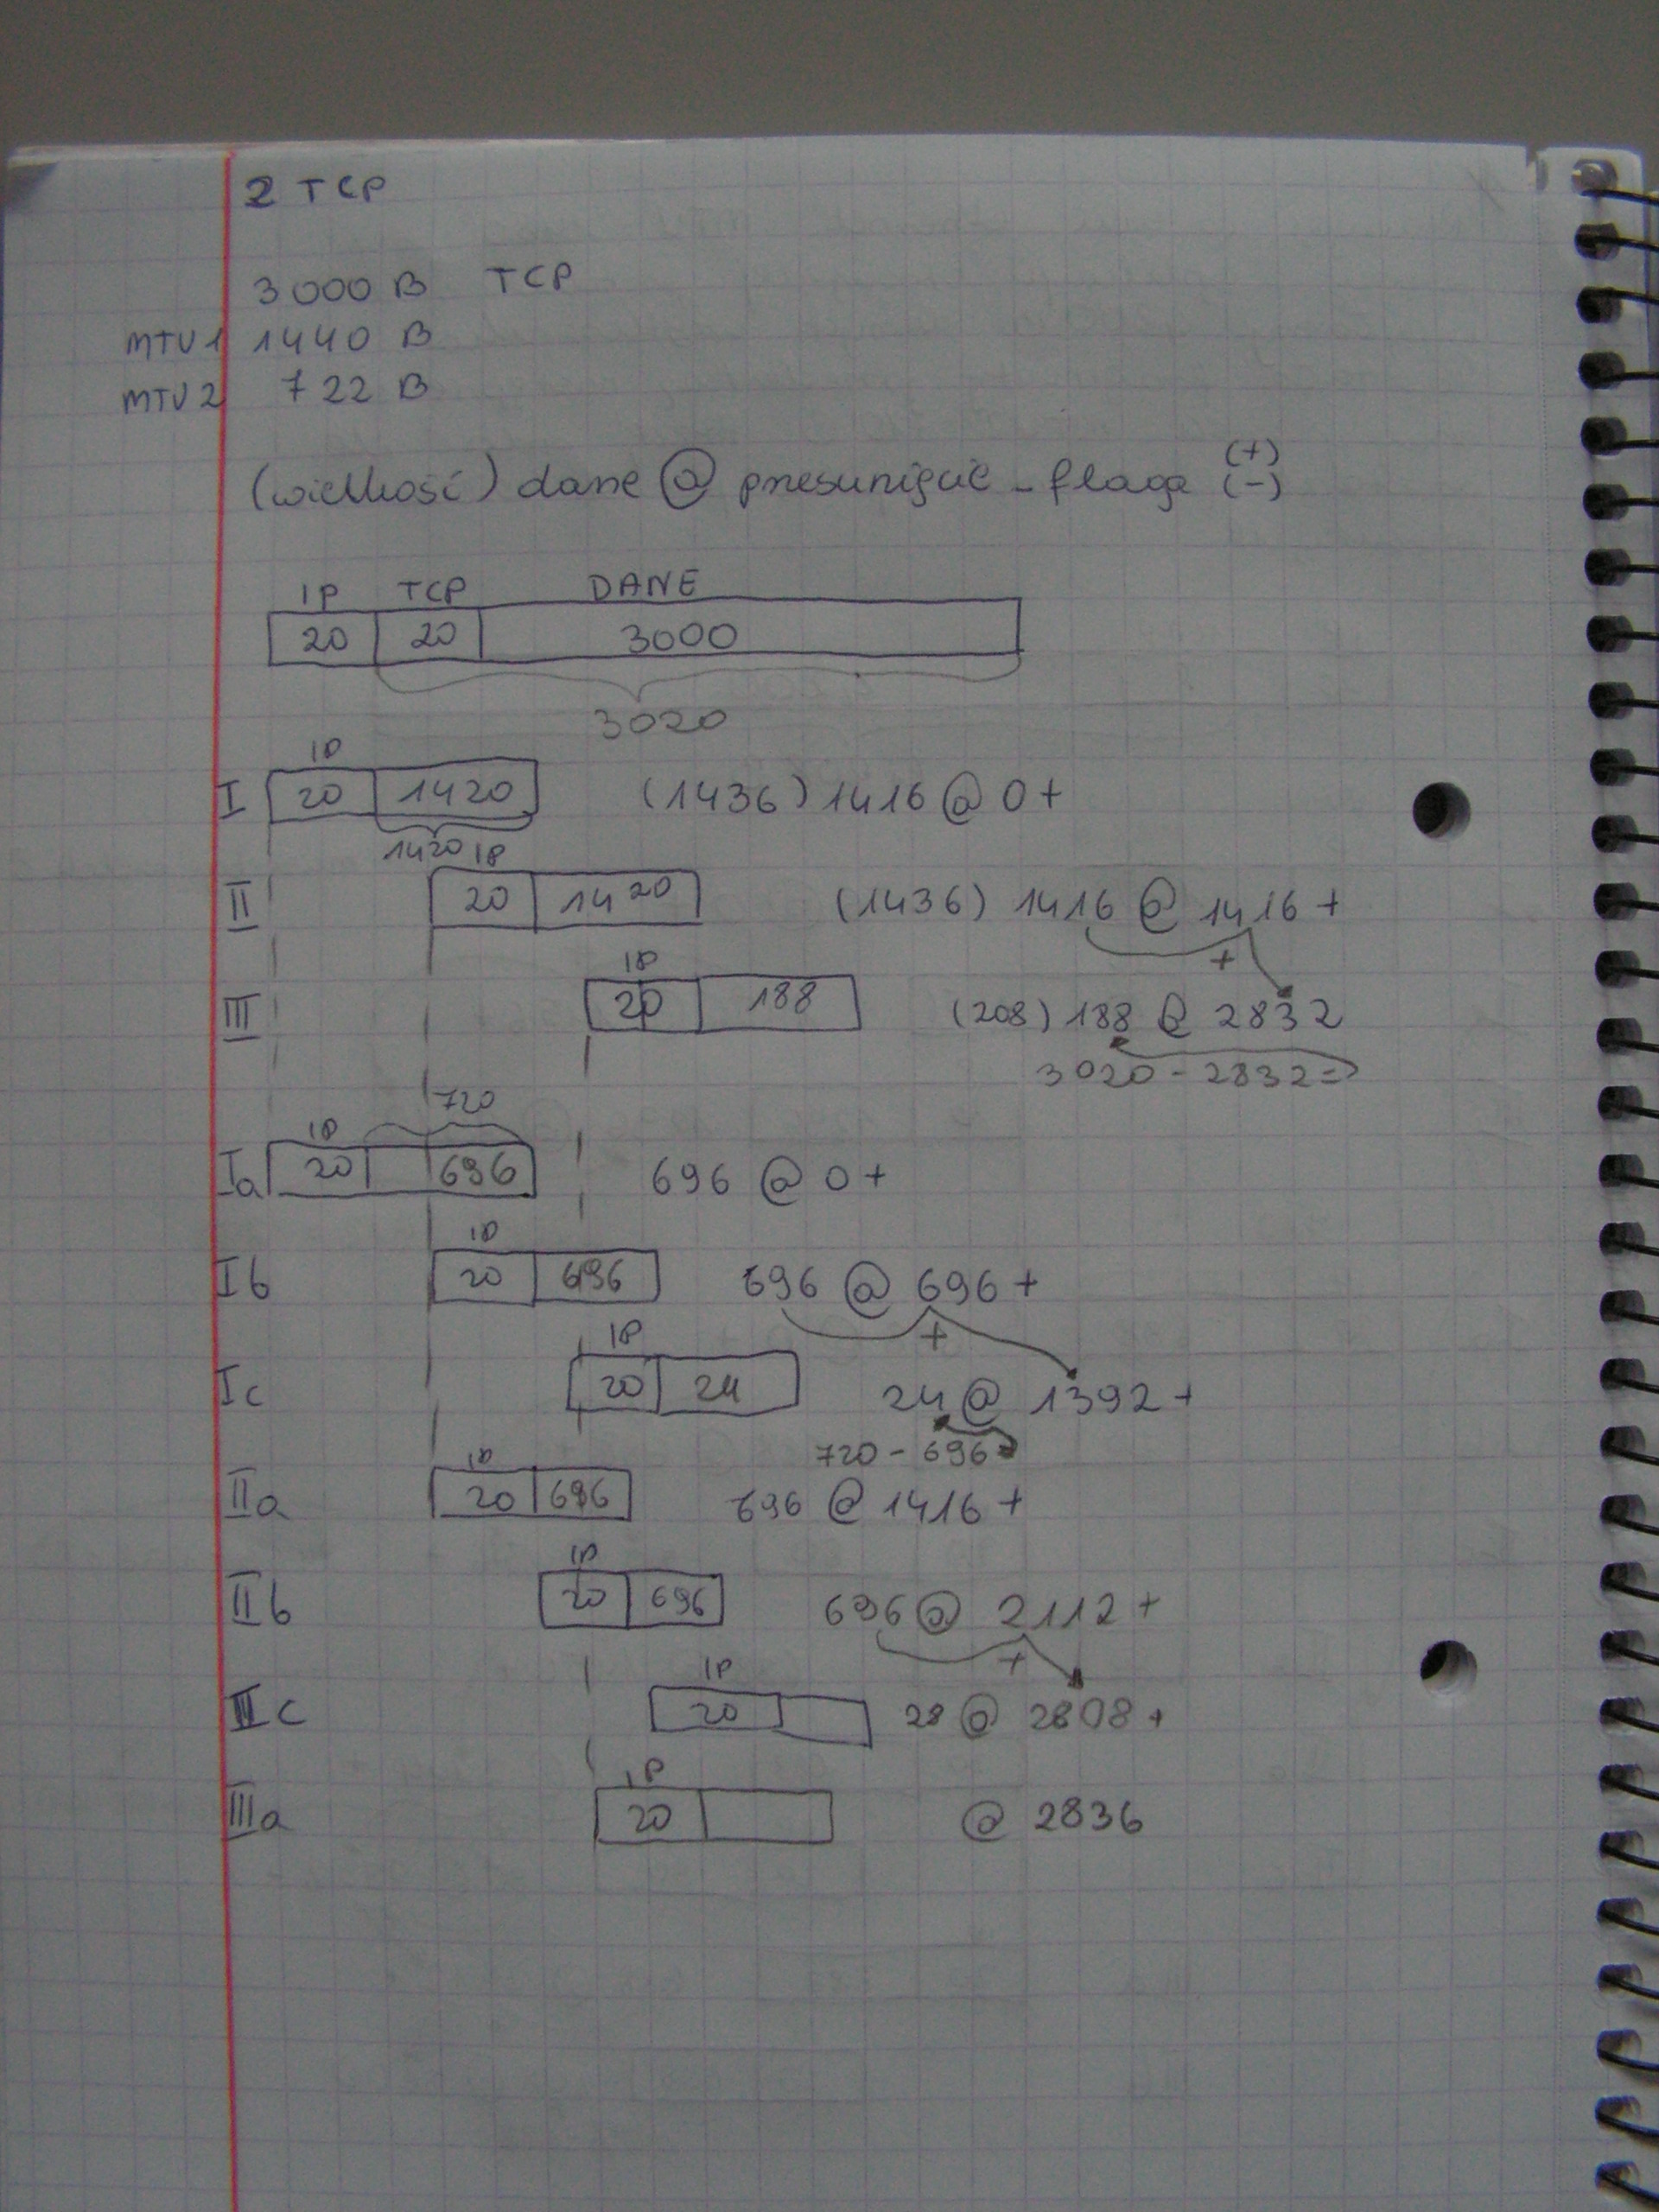 2 TCP
3000 B TCP
MTU 1 1440 B
MTU 2 722 B
(wielkość) dane @ przesunięcie - flaga (+) (-)
IP TCP DANE
20 20 3000
3020
IP
I 20 1420 (1436) 1416 @ 0 +
1420 IP
II 20 1420 (1436) 1416 @ 1416 +
+
IP
III 20 188 (208) 188 @ 2832
3020 - 2832 =
720
IP
Ia 20 696 696 @ 0 +
IP
Ib 20 696 696 @ 696 +
+
IP
Ic 20 24 24 @ 1392 +
720 - 696 =
IP
IIa 20 696 696 @ 1416 +
IP
IIb 20 696 696 @ 2112 +
+
IP
IIc 20 28 @ 2808 +
IP
IIIa 20 @ 2836